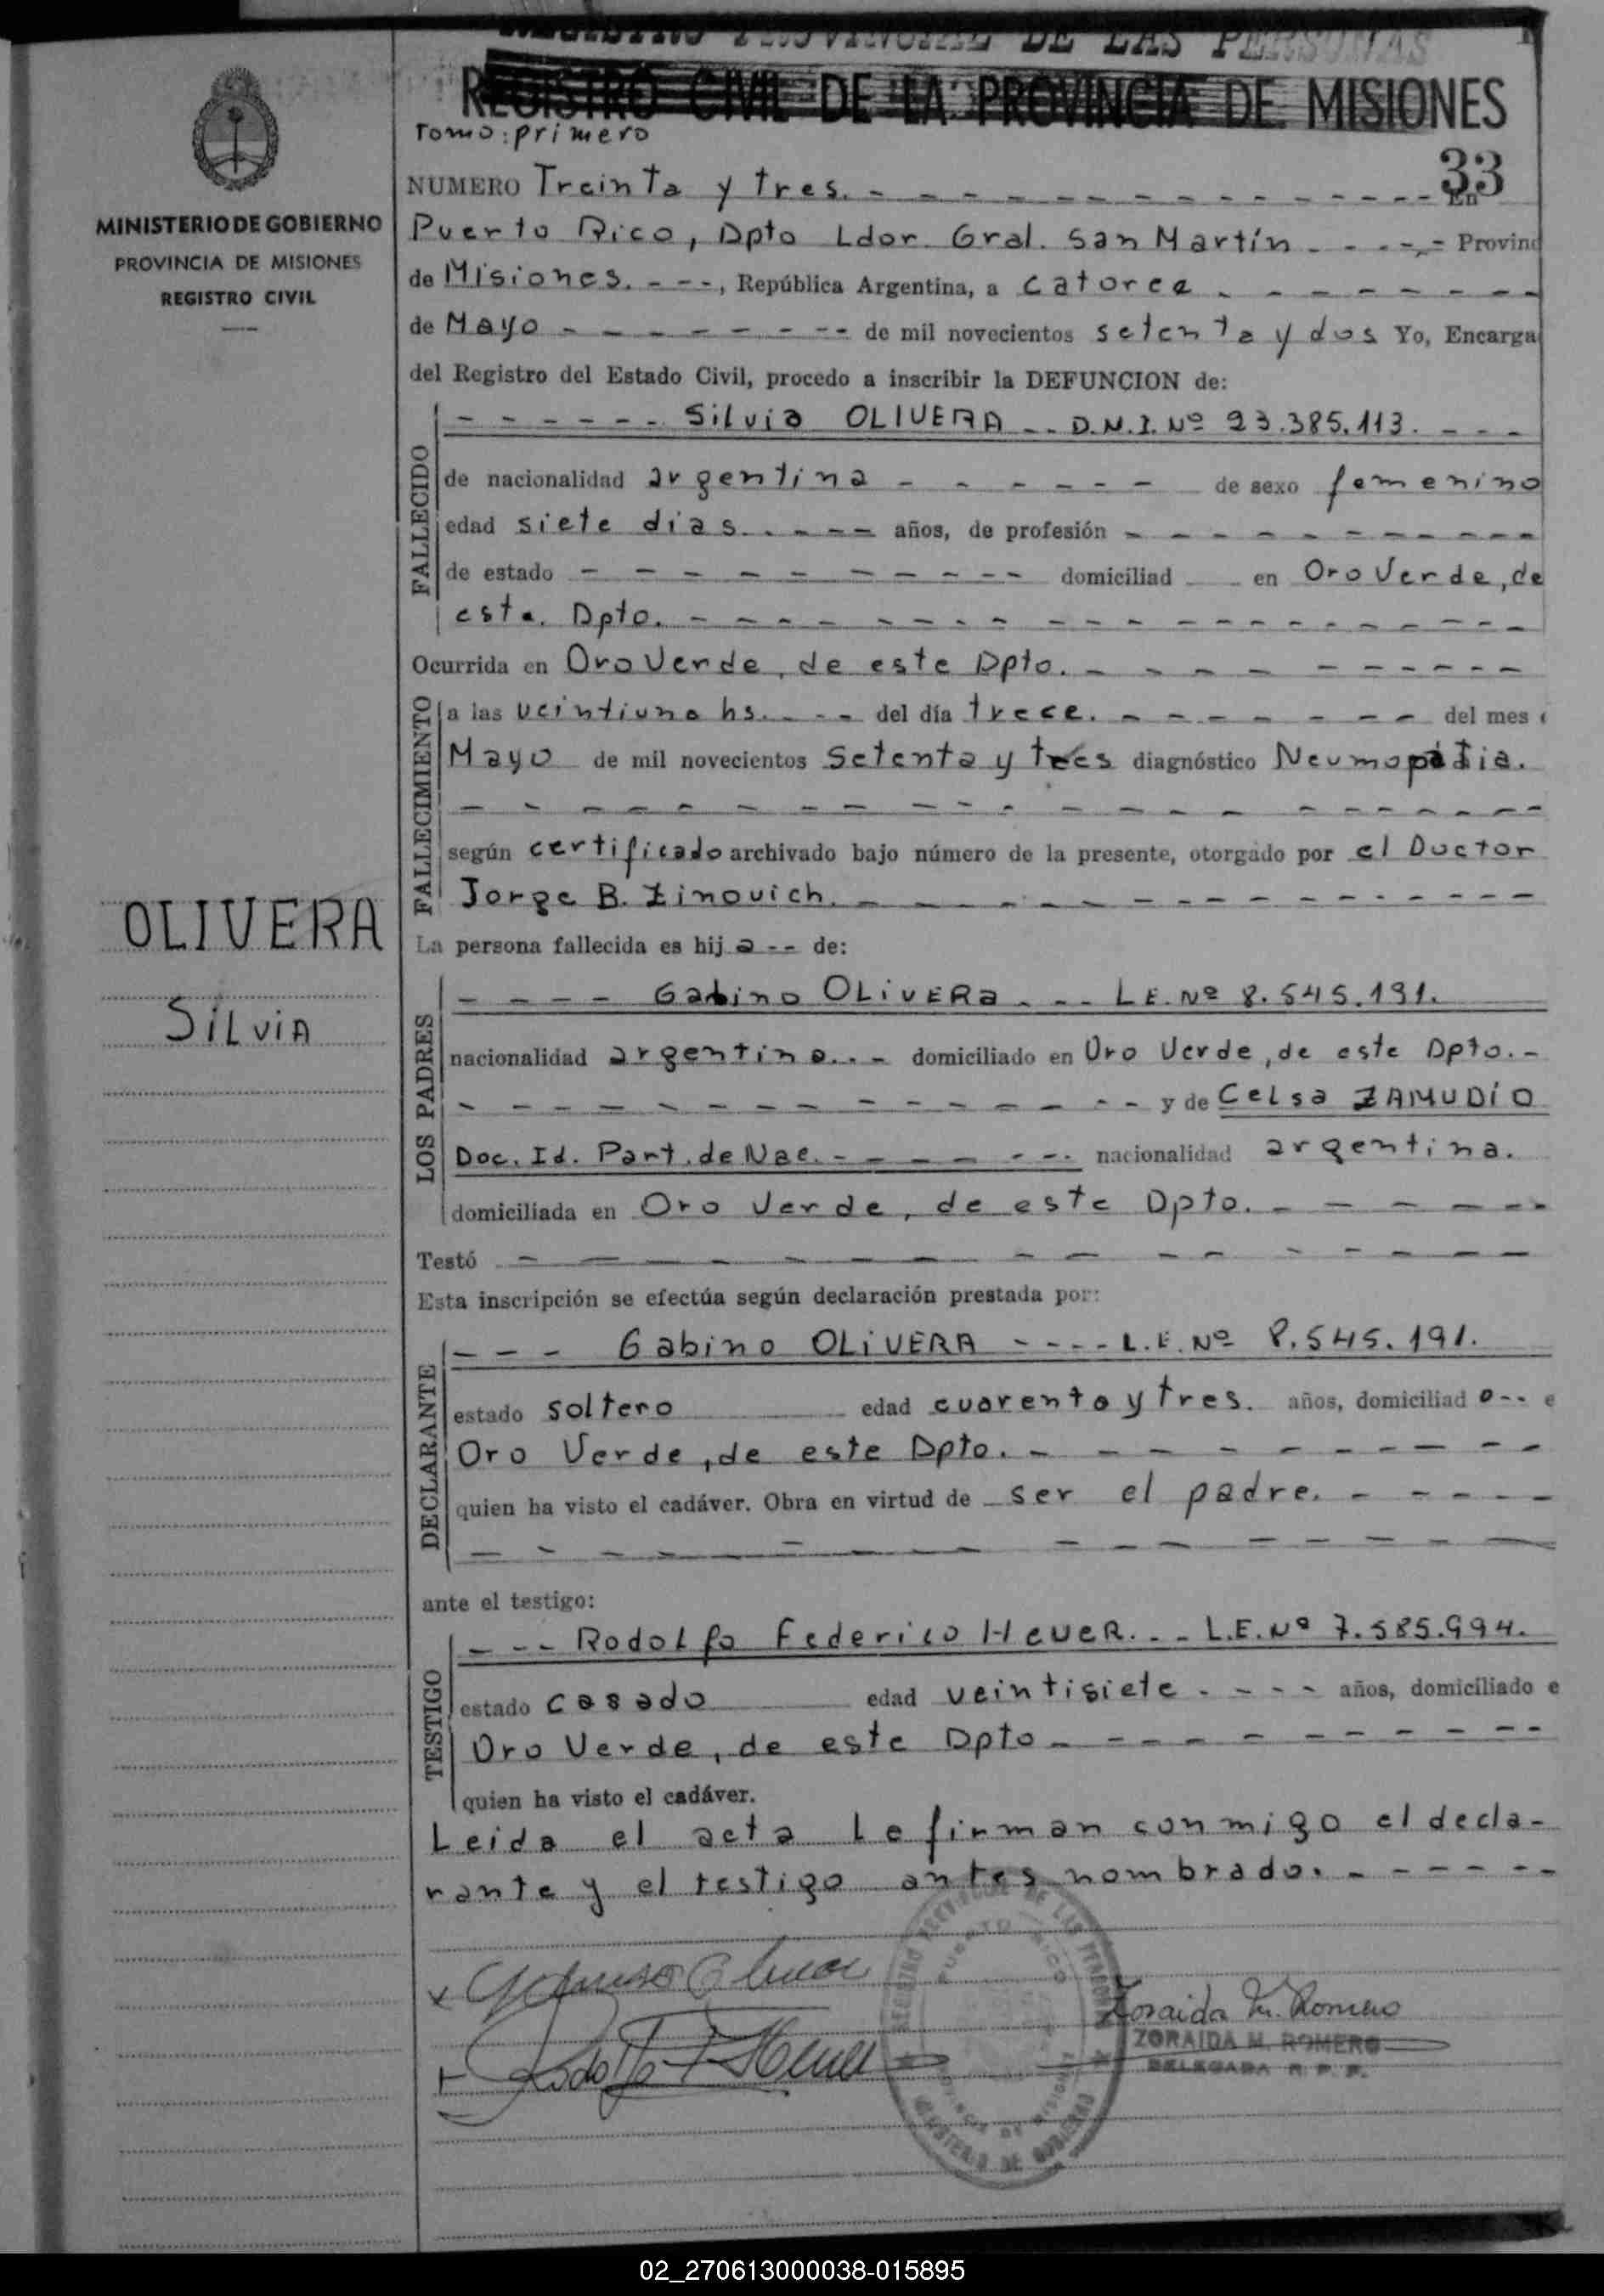 REGISTRO PROVINCIAL DE LAS PERSONAS
REGISTRO CIVIL DE LA PROVINCIA DE MISIONES
MINISTERIO DE GOBIERNO
PROVINCIA DE MISIONES
REGISTRO CIVIL
OLIVERA
SiLviA
Tomo: primero
33
NUMERO Treinta y tres. - - - En
Puerto Rico, Dpto Ldor. Gral. San Martín - - - Provinc
de Misiones. - - -, República Argentina, a catorce - - -
de Mayo - - - de mil novecientos setenta y dos Yo, Encarga
del Registro del Estado Civil, procedo a inscribir la DEFUNCION de:
FALLECIDO
- - - Silvia OLIVERA - - D.N.I. Nº 23.385.113. - - -
de nacionalidad argentina - - - de sexo femenino
edad siete dias. - - - años, de profesión - - -
de estado - - - domiciliad en Oro Verde, de
este. Dpto. - - -
Ocurrida en Oro Verde, de este Dpto. - - -
FALLECIMIENTO
a las veintiuna hs. - - - del día trece. - - - del mes
Mayo de mil novecientos Setenta y tres diagnóstico Neumopatia.
- - -
según certificado archivado bajo número de la presente, otorgado por el Doctor
Jorge B. Zinovich. - - -
La persona fallecida es hij a - - de:
LOS PADRES
- - - - Gabino OLiVERa - - - L.E. Nº 8.545.191.
nacionalidad argentina. - - domiciliado en Oro Verde, de este Dpto. -
- - - y de Celsa ZAMUDiO
Doc. Id. Part. de Nac. - - - nacionalidad argentina.
domiciliada en Oro Verde, de este Dpto. - - -
Testó - - -
Esta inscripción se efectúa según declaración prestada por:
DECLARANTE
- - - Gabino OLiVERA - - - - L.E. Nº 8.545.191.
estado soltero edad cuarenta y tres. años, domiciliad o - - e
Oro Verde, de este Dpto. - - -
quien ha visto el cadáver. Obra en virtud de ser el padre. - - -
- - -
ante el testigo:
TESTIGO
- - - Rodolfo Federico HeueR. - - L.E. Nº 7.585.994.
estado casado edad veintisiete - - - - años, domiciliado e
Oro Verde, de este Dpto - - -
quien ha visto el cadáver.
Leida el acta Le firman conmigo el decla-
rante y el testigo antes nombrado. - - -
REGISTRO PROVINCIAL DE LAS PERSONAS
PUERTO RICO
PROVINCIA DE MISIONES
MINISTERIO DE GOBIERNO
Rodolfo F Heuer
Zoraida M. Romero
ZORAIDA M. ROMERO
DELEGADA R. P. P.
02_270613000038-015895